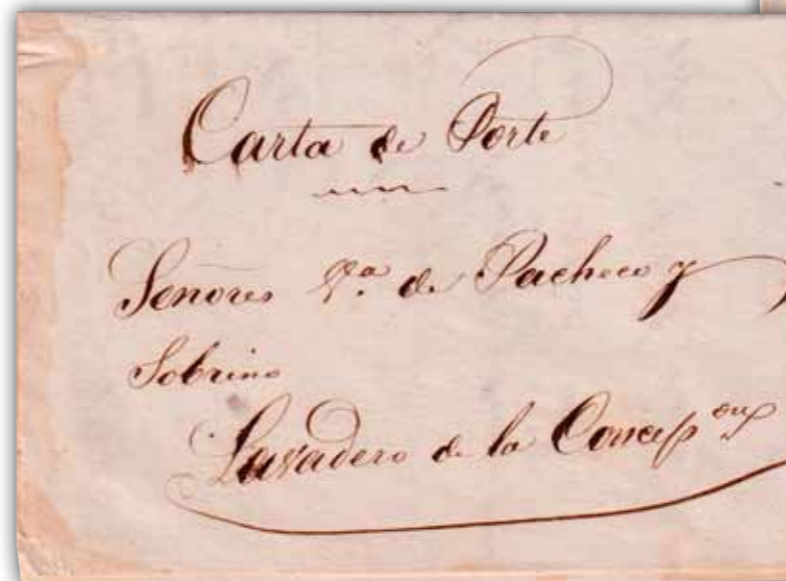 Carta de Porte
Señores V.ª de Pacheco y
Sobrino
Lavadero de la Concepᵒⁿ